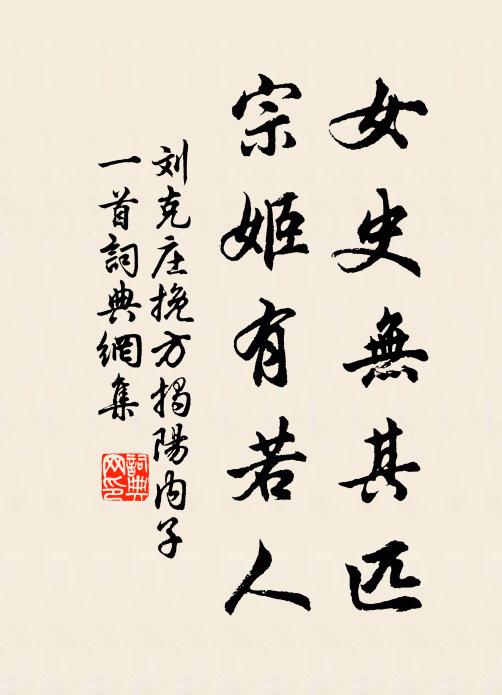 女史無其匹
宗姬有若人
刘克庄挽方揭陽内子
一首詞典網集
詞典
网印